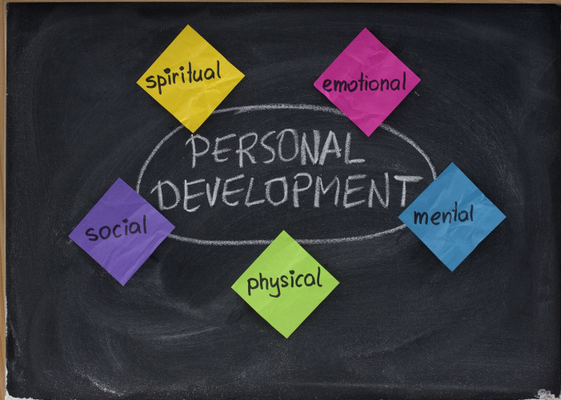 spiritual
emotional
PERSONAL
DEVELOPMENT
social
mental
physical